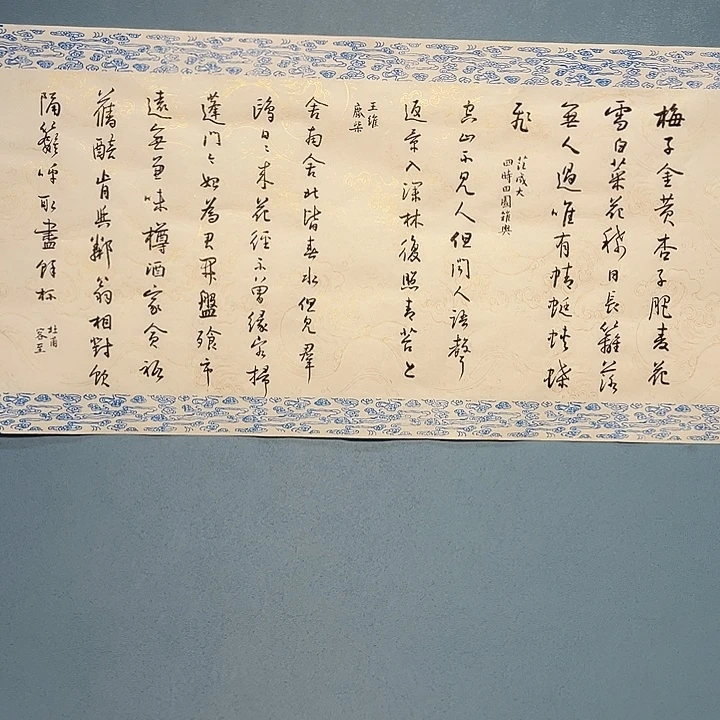 梅子金黄杏子肥麦花
雪白菜花稀日長籬落
無人過唯有蜻蜓蛺蝶
飛
范成大
四時田園雜興
空山不見人但聞人語聲
返景入深林復照青苔上
王維
鹿柴
舍南舍北皆春水但見羣
鷗日〻來花徑不曾緣客掃
蓬門今始為君開盤飱市
遠無兼味樽酒家貧祗
舊醅肯與鄰翁相對飲
隔籬呼取盡餘杯
杜甫
客至